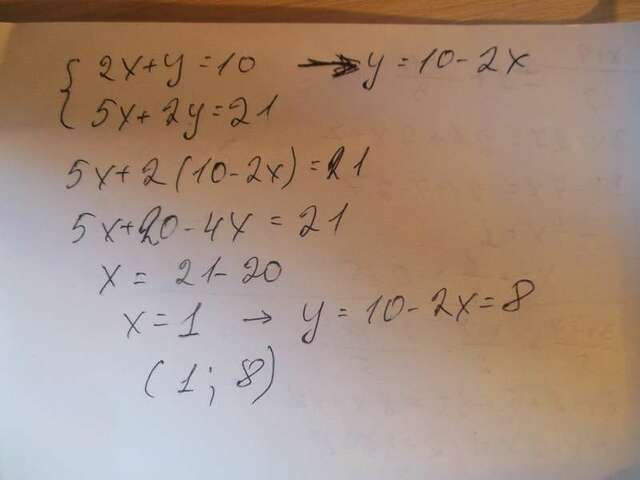 { 2x+y=10 → y=10-2x
5x+2y=21
5x+2(10-2x)=21
5x+20-4x=21
x=21-20
x=1 → y=10-2x=8
(1;8)